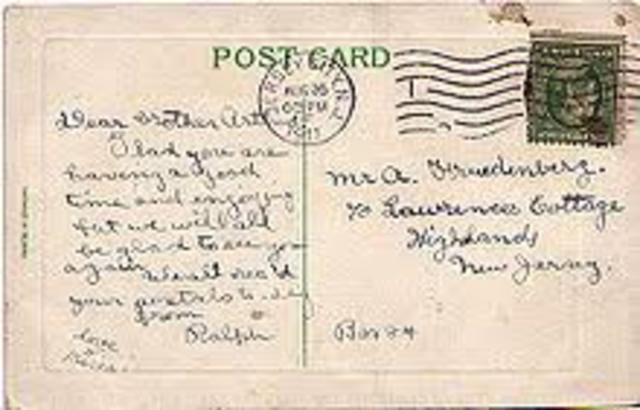 POST CARD
JERSEY CITY, N.J.
AUG 26
6 PM
1911
Dear Brother Art
Glad you are
having a good
time and enjoying
but we will all
be glad to see you
again
your postals to-day
from
Ralph
Love
Mr A. Fruedenberg.
℅ Lawrence Cottage
Highlands
New Jersey.
Box 24